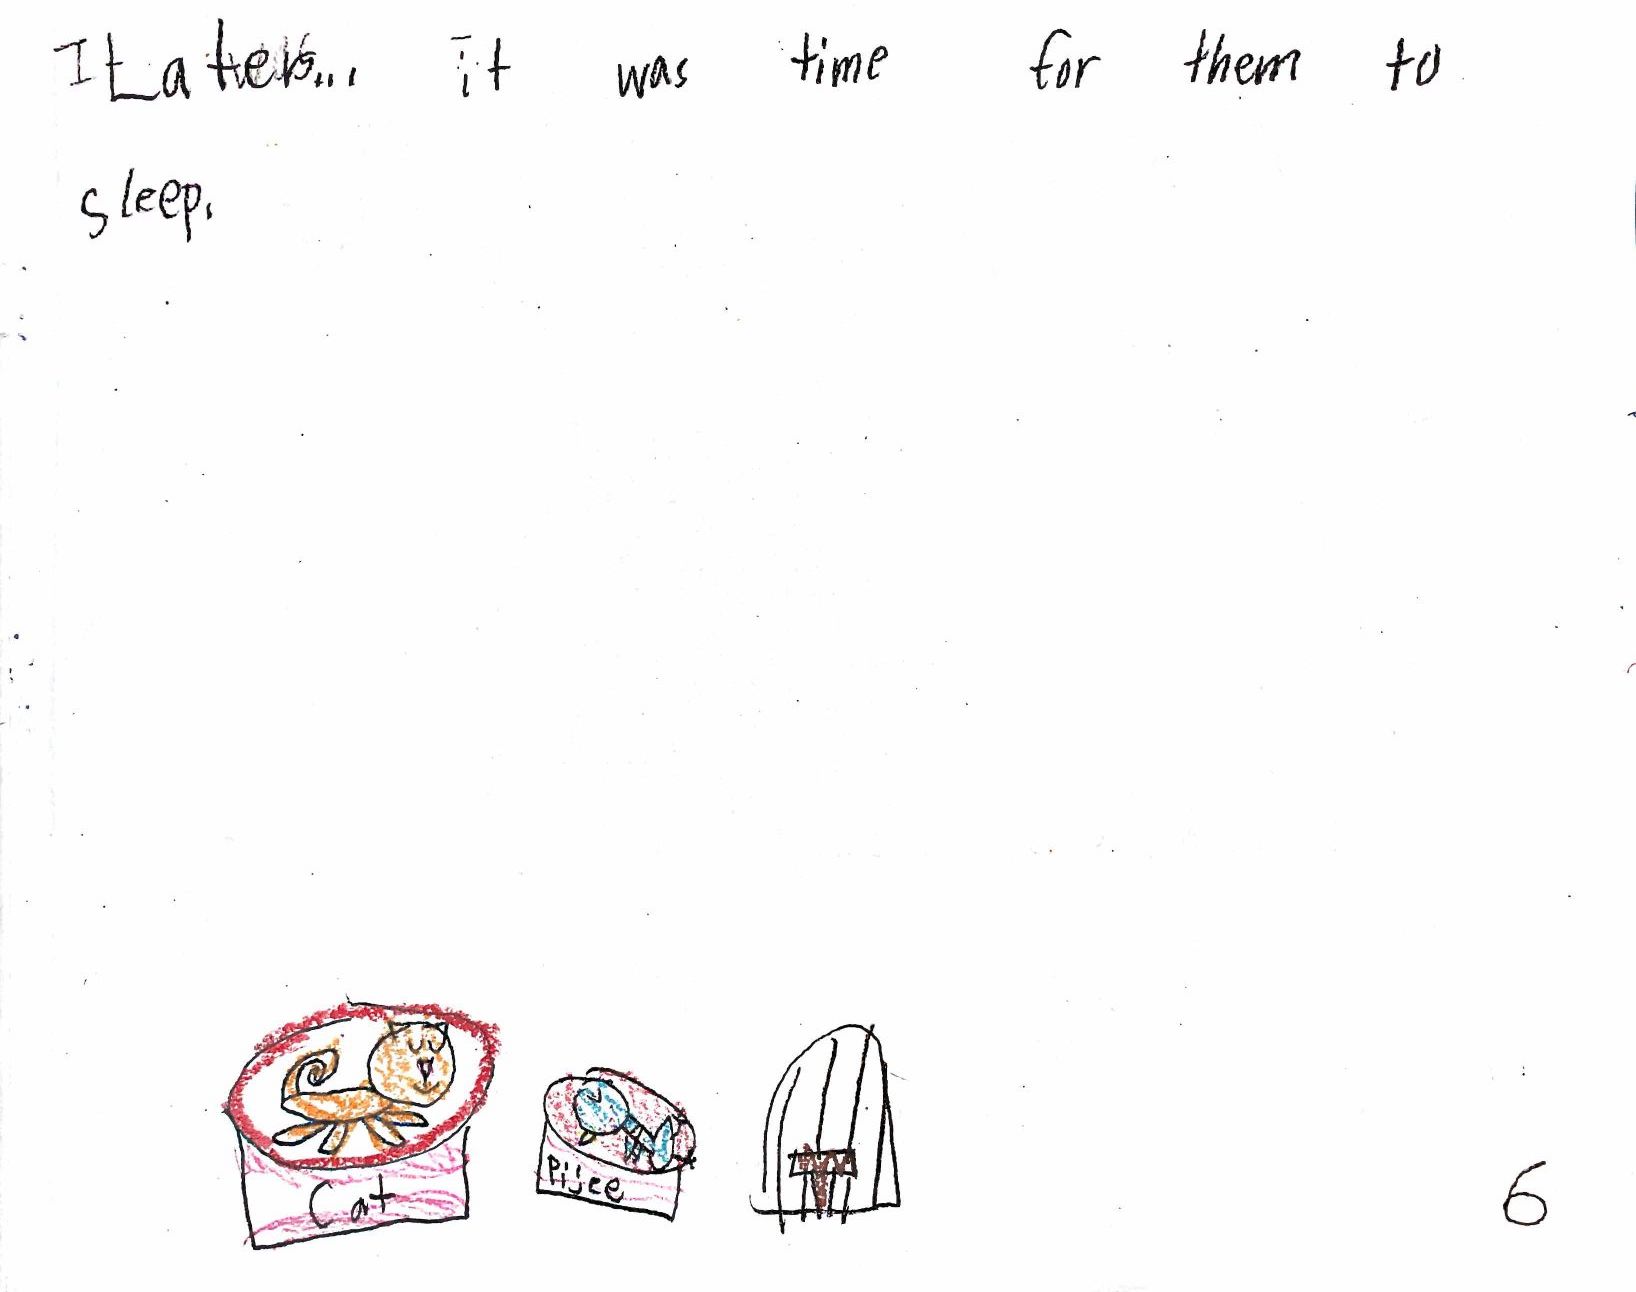 Later... it was time for them to
sleep.
Cat
Pijee
6